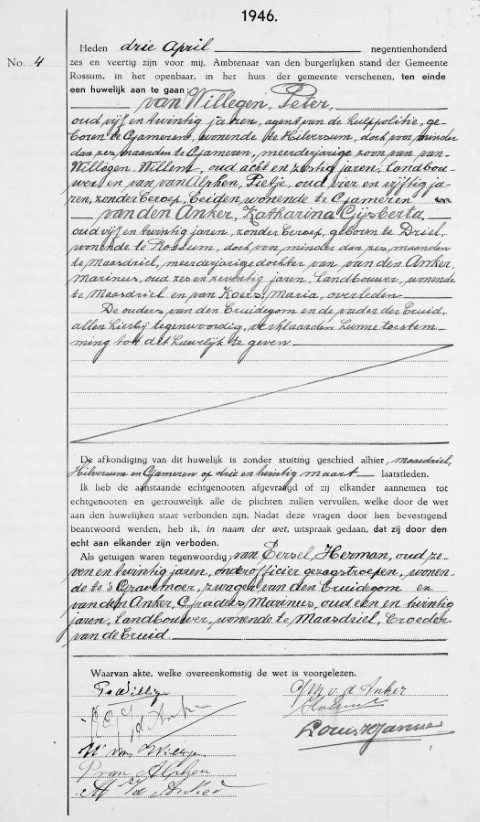 1946.
No. 4
Heden drie April negentienhonderd
zes en veertig zijn voor mij, Ambtenaar van den burgerlijken stand der Gemeente
Rossum, in het openbaar, in het huis der gemeente verschenen, ten einde
een huwelijk aan te gaan:
van Willegen, Peter,
oud vijf en twintig jaren, agent van de hulppolitie, ge-
boren te Gameren, wonende te Hilversum, doch voor minder
dan zes maanden te Gameren, meerderjarige zoon van van
Willigen, Willem, oud acht en zestig jaren, landbou-
wer en van van Alphen, Pietje, oud vier en vijftig ja-
ren, zonder beroep, beiden wonende te Gameren en
van den Anker, Katharina Gijsberta,
oud vijf en twintig jaren, zonder beroep, geboren te Driel,
wonende te Rossum, doch voor minder dan zes maanden
te Maasdriel, meerderjarige dochter van van den Anker,
Marinus, oud zes en zeventig jaren, landbouwer, wonende
te Maasdriel en van Koers, Maria, overleden
De ouders van den bruidegom en de vader der bruid,
allen hierbij tegenwoordig, verklaarden hunne toestem-
ming tot dit huwelijk te geven
De afkondiging van dit huwelijk is zonder stuiting geschied alhier, Maasdriel,
Hilversum en Gameren op drie en twintig maart laatstleden.
Ik heb de aanstaande echtgenooten afgevraagd of zij elkander aannemen tot
echtgenooten en getrouwelijk alle de plichten zullen vervullen, welke door de wet
aan den huwelijken staat verbonden zijn. Nadat deze vragen door hen bevestigend
beantwoord werden, heb ik, in naam der wet, uitspraak gedaan, dat zij door den
echt aan elkander zijn verboden.
Als getuigen waren tegenwoordig: van Eersel, Herman, oud ze-
ven en twintig jaren, onderofficier gezagstroepen, wonen-
de te 's Gravemoer, zwager van den bruidegom en
van den Anker, Gradus Marinus, oud een en twintig
jaren, landbouwer, wonende te Maasdriel, broeder
van de bruid
Waarvan akte, welke overeenkomstig de wet is voorgelezen.
P v Willige
v d Anker
W van Willige
P van Alphen
M v d Anker
G M v. d. Anker